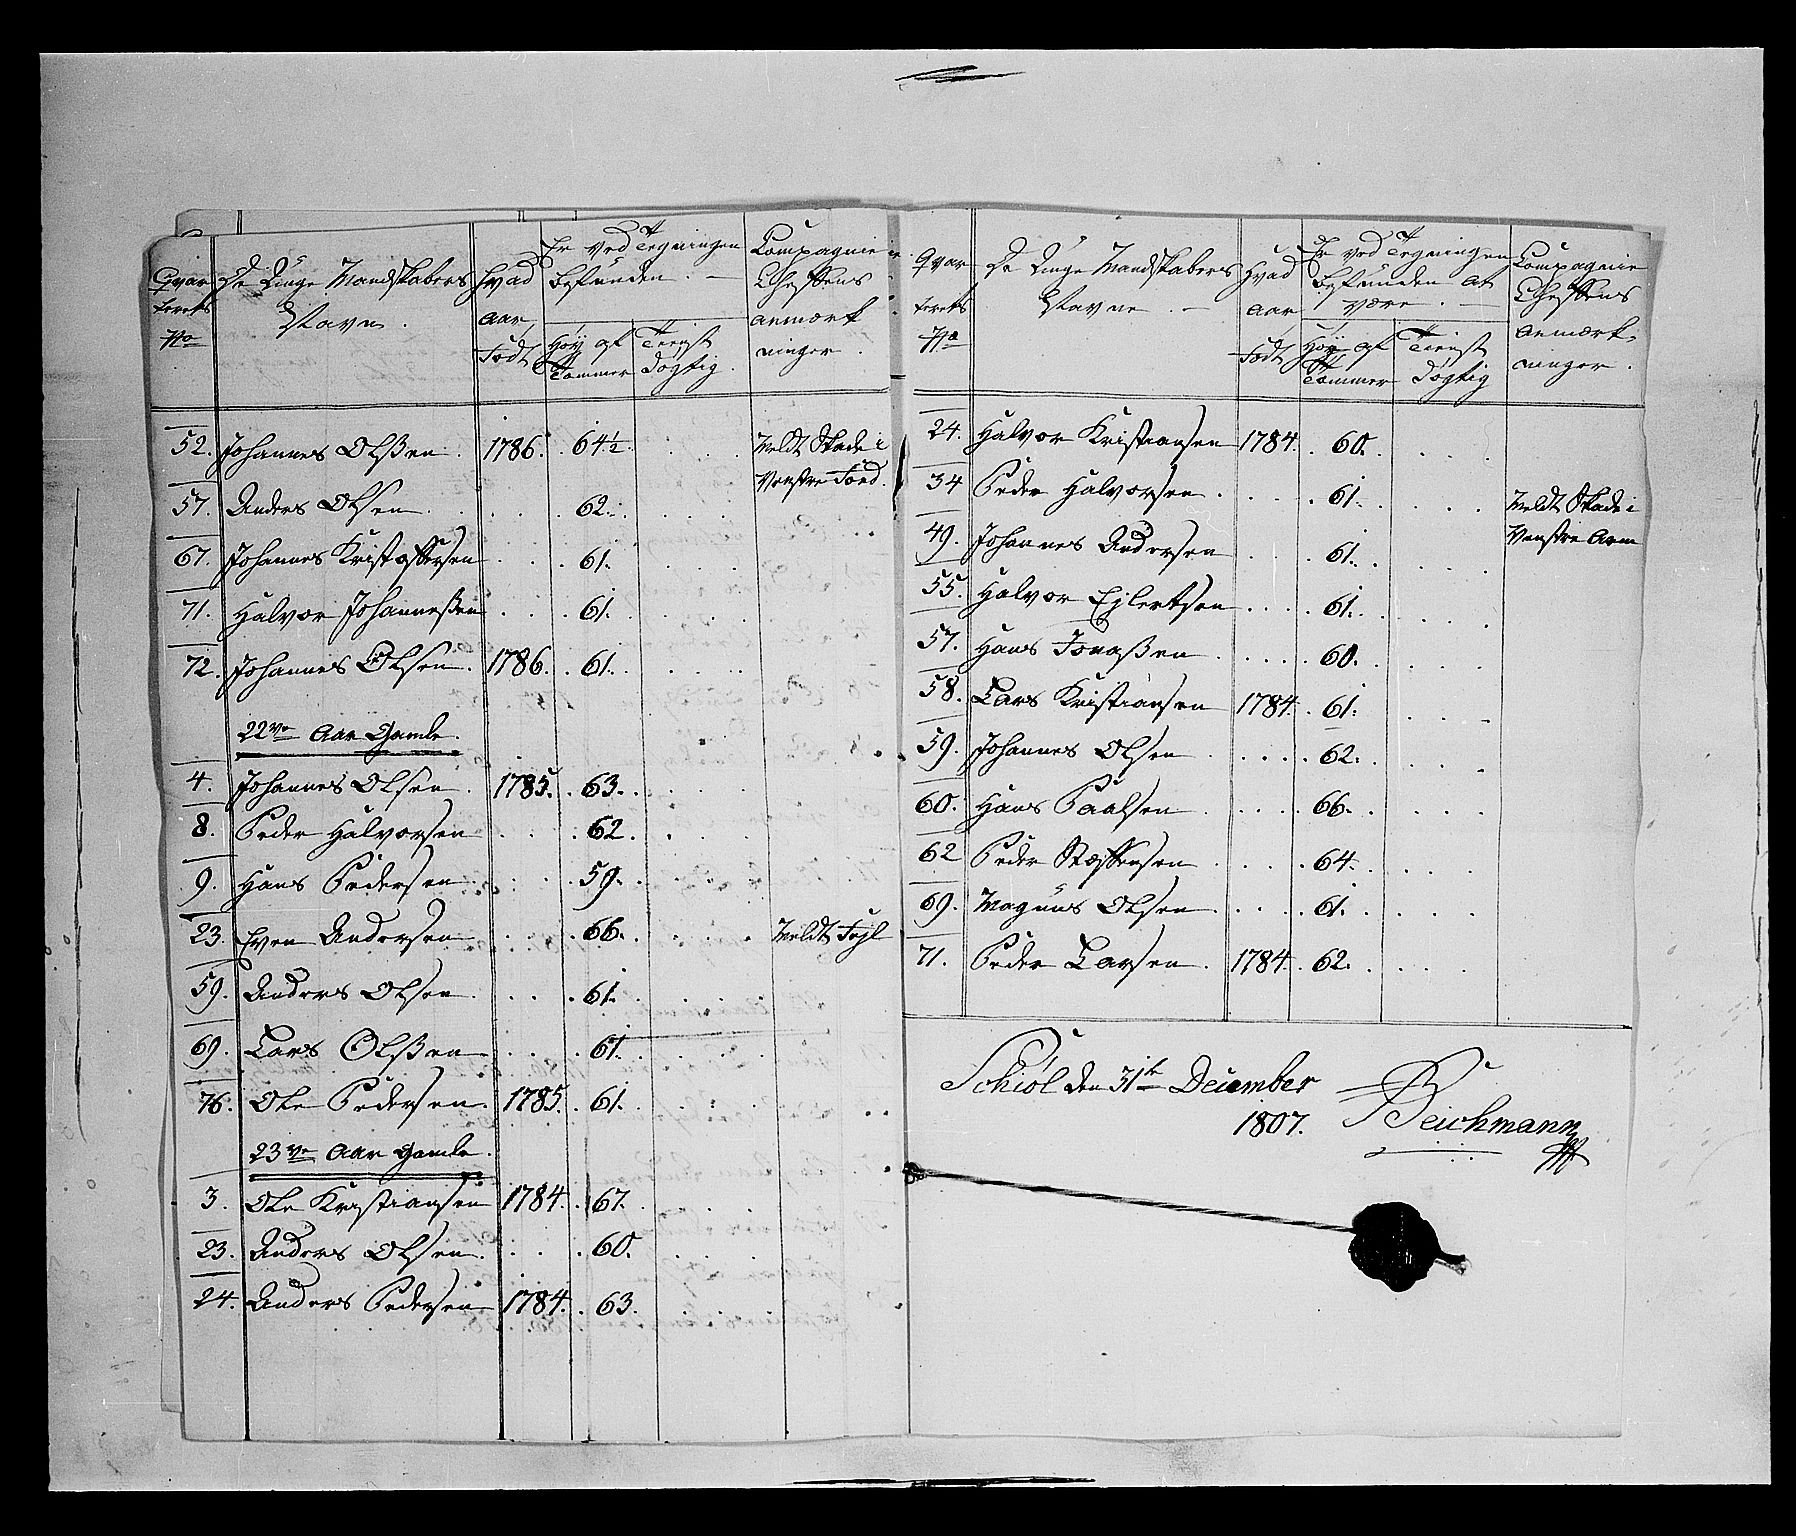 Qvar
terets
No
De Unge Mandskabers
Navn.
Hvad
Aar
Født
Er ved Tegningen
befunden. —
Høy af
Tommer
Tienst
dögtig.
Compagnie
Cheffens
anmærk
ninger.
52. Johannes Olßen. 1786. 64½ Meldt Skade i
Venstre Food.
57. Anders Olsen. 62.
67. Johannes Kristoffersen 61.
71. Halvor Johanneßen 61.
72. Johannes Olsen. 1786. 61.
22ve Aar Gamle.
4. Johannes Olsen. 1785. 63.
8. Peder Halvorsen 62.
9. Hans Pedersen. 59.
23. Even Andersen 66. Meldt Fejl
59. Anders Olsen. 61.
69. Lars Olßen 61.
76. Ole Pedersen. 1785. 61.
23ve Aar Gamle.
3. Ole Kristiansen 1784. 67.
23. Anders Olsen. 60.
24. Anders Pedersen 1784. 63.
Qvar
terets
No
De Unge Mandskabers
Navne. —
Hvad
Aar
Født
Er ved Tegningen
befunden at
være. —
Høy af
Tommer
Tienst
dögtig
Compagnie
Cheffens
Anmærk-
ninger.
24. Halvor Kristiansen 1784. 60.
34 Peder Halvorsen. 61. Meldt Skade i
Venstre Arm
49. Johannes Andersen 61.
55. Halvor Ejlertsen 61.
57. Hans Jonaßen 60.
58. Lars Kristiansen 1784. 61.
59. Johannes Olsen 62.
60. Hans Paalsen 66.
62 Peder Stæffensen 64.
69. Magnus Olsen 61.
71. Peder Larsen. 1784. 62.
Schiöl den 31te December
1807. Beichmann